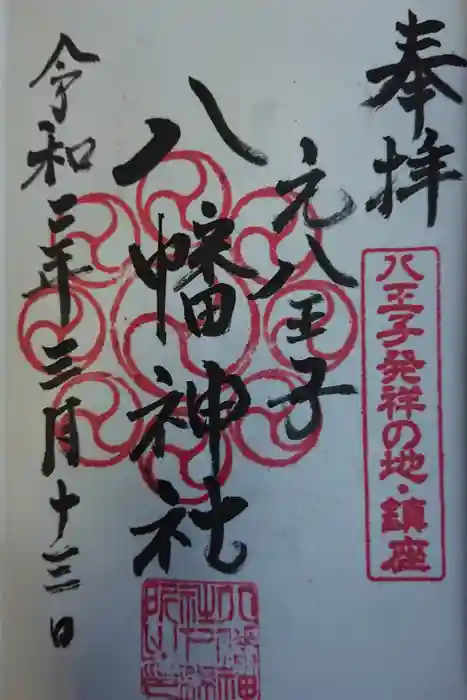 奉拝
八王子発祥の地・鎮座
元八王子
八幡神社
令和三年三月十三日